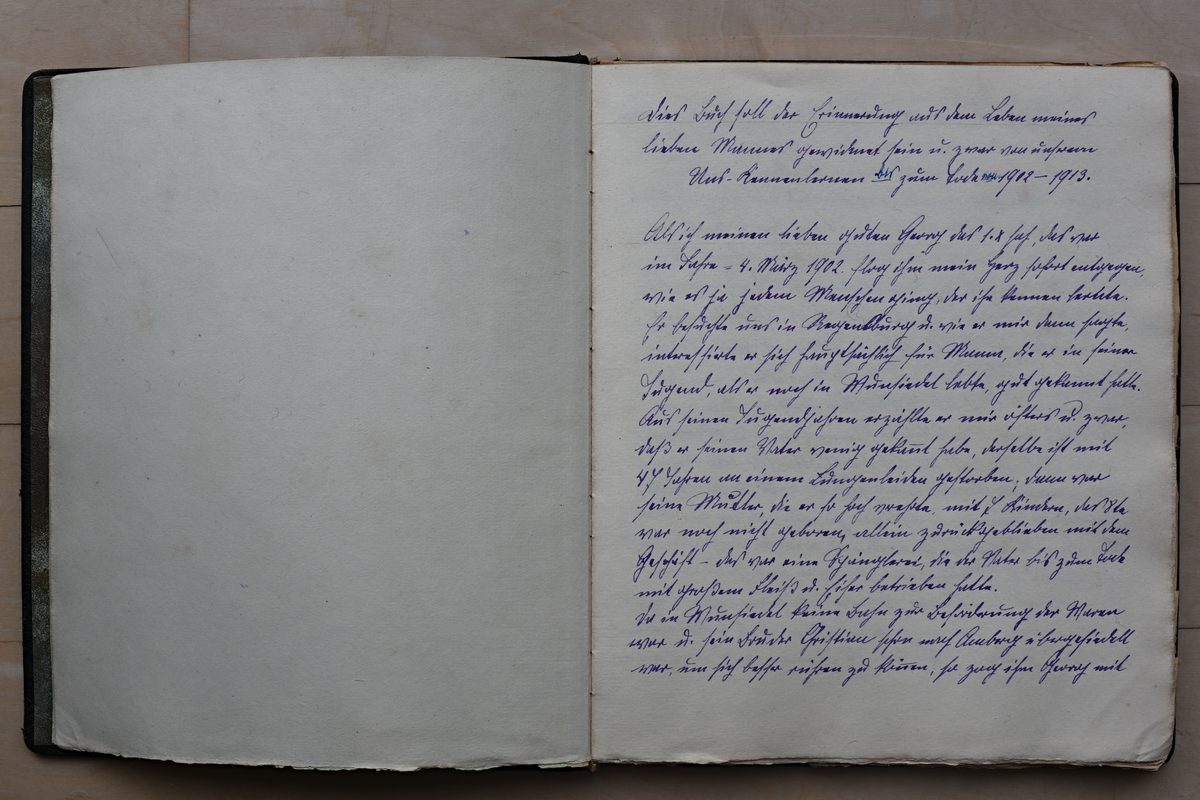 Dies Buch soll der Erinnerung aus dem Leben meines
lieben Mannes gewidmet sein u. zwar von unserem
Uns-Kennenlernen bis zum Tode 1902 – 1913.
Als ich meinen lieben guten Georg das 1.x sah, das war
im Jahre = 4. März 1902. flog ihm mein Herz sofort entgegen,
wie es ja jedem Menschen ging, der ihn kennen lernte.
Er besuchte uns in Regensburg u. wie er mir dann sagte,
interessierte er sich hauptsächlich für Mama, die er in seiner
Jugend, als er noch in Wunsiedel lebte, gut gekannt hatte.
Aus seinen Jugendjahren erzählte er mir öfters u. zwar,
daß er seinen Vater wenig gekannt habe, derselbe ist mit
47 Jahren an einem Lungenleiden gestorben; dann war
seine Mutter, die er so hoch verehrte, mit 7 Kindern, das 8te
war noch nicht geboren, allein zurückgeblieben mit dem
Geschäft – das war eine Spänglerei, die der Vater bis zum Tode
mit großem Fleiß u. Eifer betrieben hatte.
Da in Wunsiedel keine Bahn zur Beförderung der Waren
war u. sein Bruder Christian schon nach Amberg übergesiedelt
war, um sich besser rühren zu können, so zog ihn Georg mit